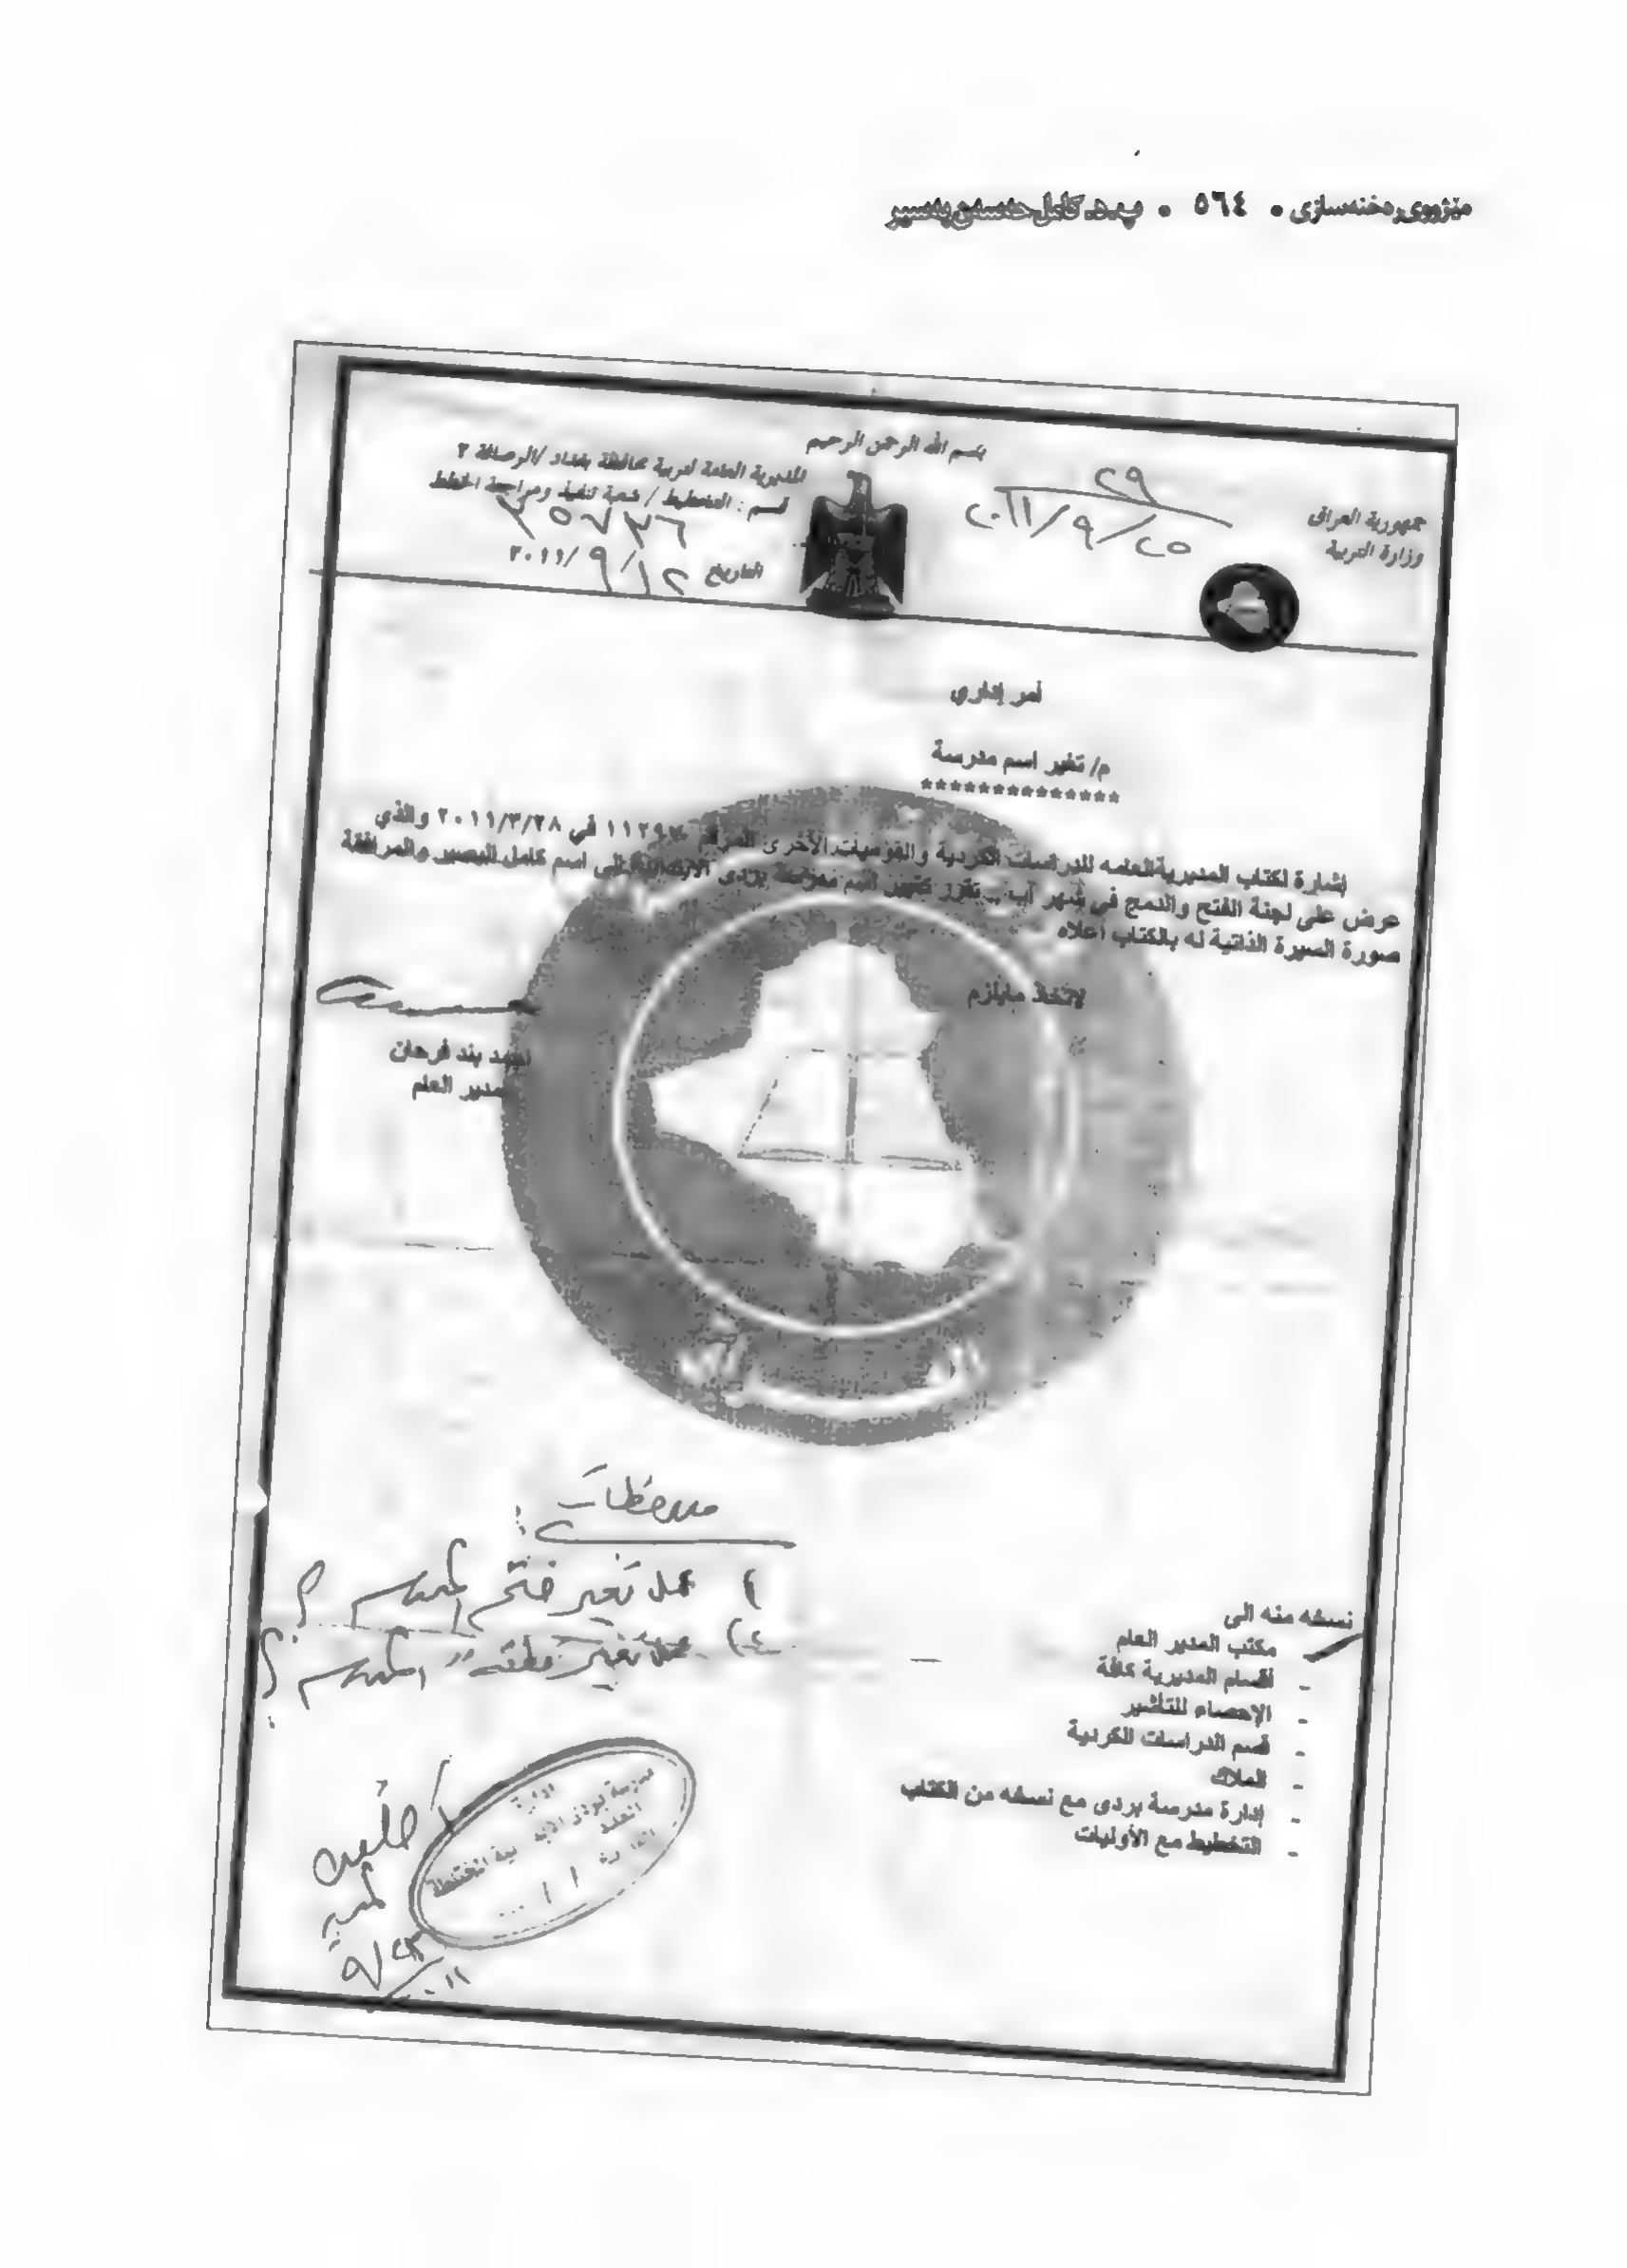 مێژووی ڕەخنەسازی • ٥٦٤ • پ.د. کامل حەسەن بەسیر
بسم الله الرحمن الرحيم
جمهورية العراق
وزارة التربية
٢٩
٢٠١١/٩/٢٥
المديرية العامة لتربية محافظة بغداد /الرصافة ٢
قسم : التخطيط / شعبة تنفيذ ومراجعة الخطط
٣٥٧٣٦
التاريخ ١٢/ ٩ /٢٠١١
أمر إداري
م/ تغير اسم مدرسة
**************
إشارة لكتاب المديرية العامه للدراسات الكردية والقوميات الأخرى المرقم ١١٢٩٧ في ٢٠١١/٣/٢٨ والذي
عرض على لجنة الفتح والدمج في شهر آب .. تقرر تغير اسم مدرسة بردى الابتدائية الى اسم كامل البصير والمرافقة
صورة السيرة الذاتية له بالكتاب اعلاه
لاتخاذ مايلزم
بند فرحان
المدير العام
ملاحظات :
١) هل تغير ختم المدرسة ؟
٢) هل تغير المدرسة ؟
نسخه منه الى
مكتب المدير العام
- أقسام المديرية كافة
- الإحصاء للتأشير
- قسم الدراسات الكردية
- الملاك
- إدارة مدرسة بردى مع نسخه من الكتاب
- التخطيط مع الأوليات
العدد